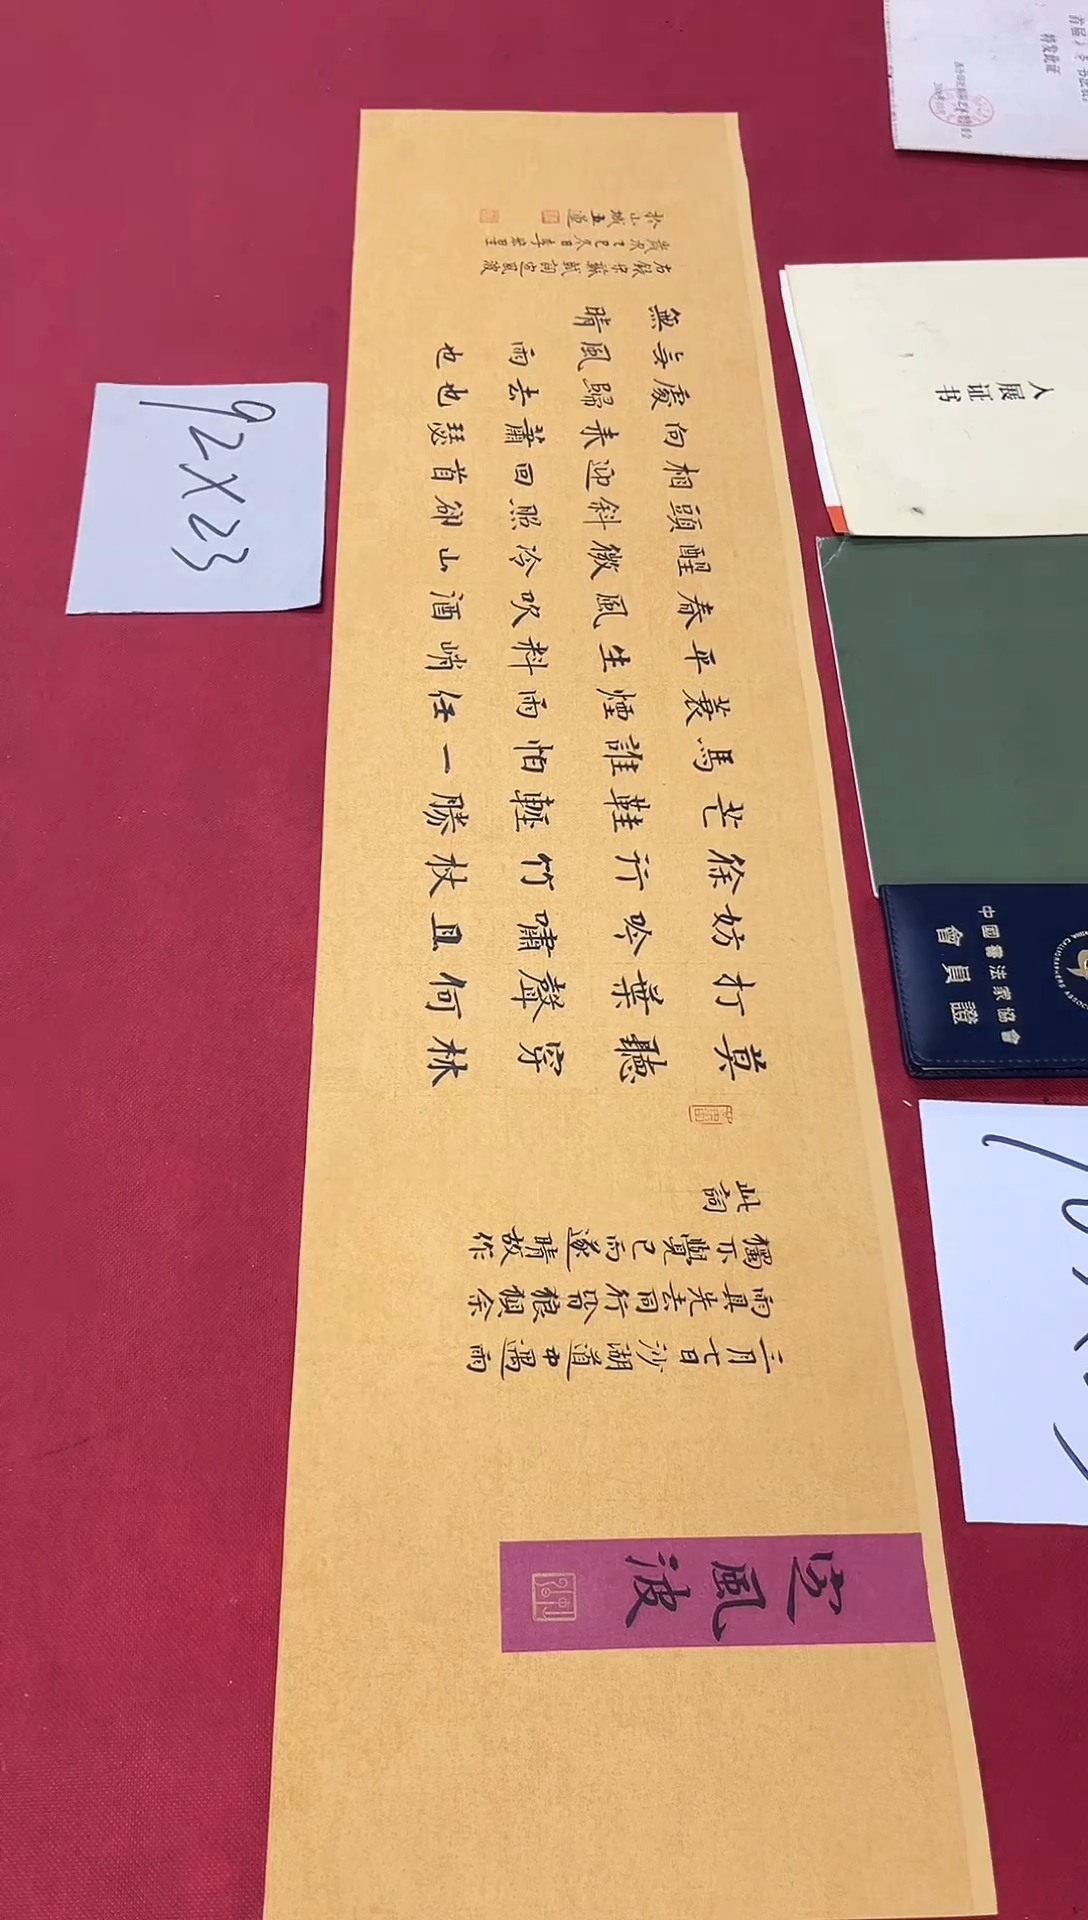 定風波
三月七日沙湖道中遇雨
雨具先去同行皆狼狽余
獨不覺已而遂晴故作
此詞
莫聽穿林
打葉聲何
妨吟嘯且
徐行竹杖
芒鞋輕勝
馬誰怕一
蓑煙雨任
平生料峭
春風吹酒
醒微冷山
頭斜照卻
相迎回首
向來蕭瑟
處歸去也
无風雨也
無晴
右錄宋蘇軾詞定風波
歲次乙巳冬日
於山城
92X23
特发此证
入展证书
中國書法家協會
會員證